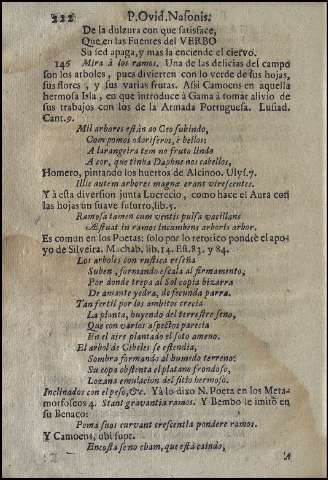 222 P. Ovid. Nasonis.
De la dulzura con que satisface,
Que en las Fuentes del VERBO
Su sed apaga, y mas la enciende el ciervo.
146 Mira à los ramos. Una de las delicias del campo
son los arboles, pues divierten con lo verde de sus hojas,
sus flores, y sus varias frutas. Assi Camoens en aquella
hermosa Isla, en que introduce à Gama à tomar alivio de
sus trabajos con los de la Armada Portuguesa. Lusiad.
Cant. 9.
Mil arbores estàn ao Ceo subindo,
Com pomos odoriferos, è bellos
A larangeira tem no fruto lindo
A cor, que tinha Daphne nos cabellos,
Homero, pintando los huertos de Alcinoo. Ulys. 7.
Illic autem arbores magnæ erant virescentes.
Y à esta diversion junta Lucrecio, como hace el Aura con
las hojas un suave susurro, lib. 5.
Ramosa tamen cum ventis pulsa vacillans
Æstuat in ramos incumbens arboris arbor.
Es comun en los Poetas: solo por lo retorico pondrè el apo-
yo de Silveira. Machab. lib. 14. Est. 83. y 84.
Los arboles con rustica reseña
Suben, formando escala al firmamento,
Por donde trepa al Sol copia bizarra
De amante yedra, de fecunda parra.
Tan fertil por los ambitos crecia
La planta, huyendo del terrestre seno,
Que con varios aspectos parecia
En el aire plantado el soto ameno.
El arbol de Cibeles se estendia,
Sombra formando al humedo terreno:
Su copa obstenta el platano frondoso,
Lozana emulacion del sitio hermoso.
Inclinados con el peso, &c. Yà lo dixo N. Poeta en los Meta-
morfoseos 4. Stant gravantia ramos. Y Bembo le imitò en
su Benaco:
Poma suos curvant crescentia pondere ramos.
Y Camoens, ubi supr.
Encosta seno cham, que està caindo,
A